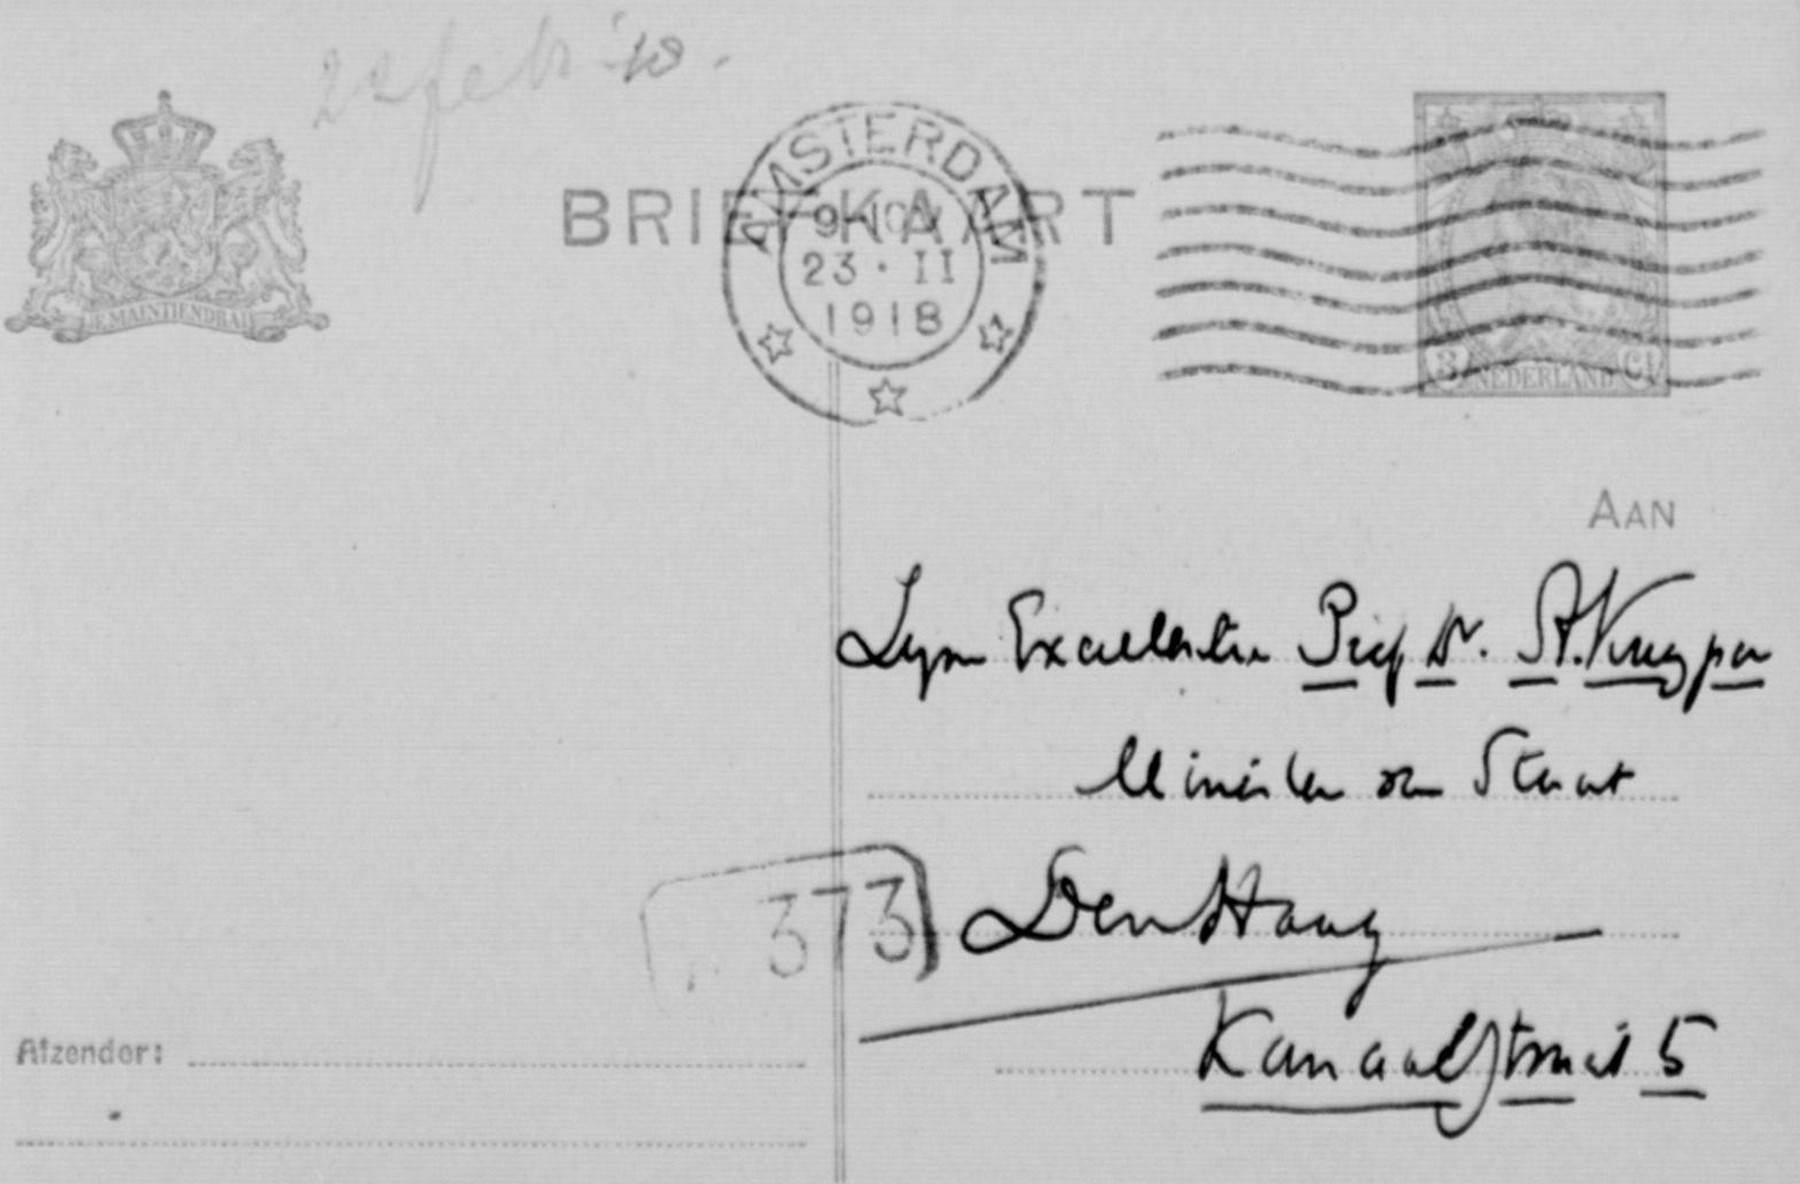 22 feb '18.
BRIEFKAART
AMSTERDAM
23 · II
1918
JE MAINTIENDRAI
3 NEDERLAND Ct
AAN
Zijne Excellentie Prof Dr. A. Kuyper
Minister van Staat
373
Den Haag
Kanaalstraat 5
Afzender: